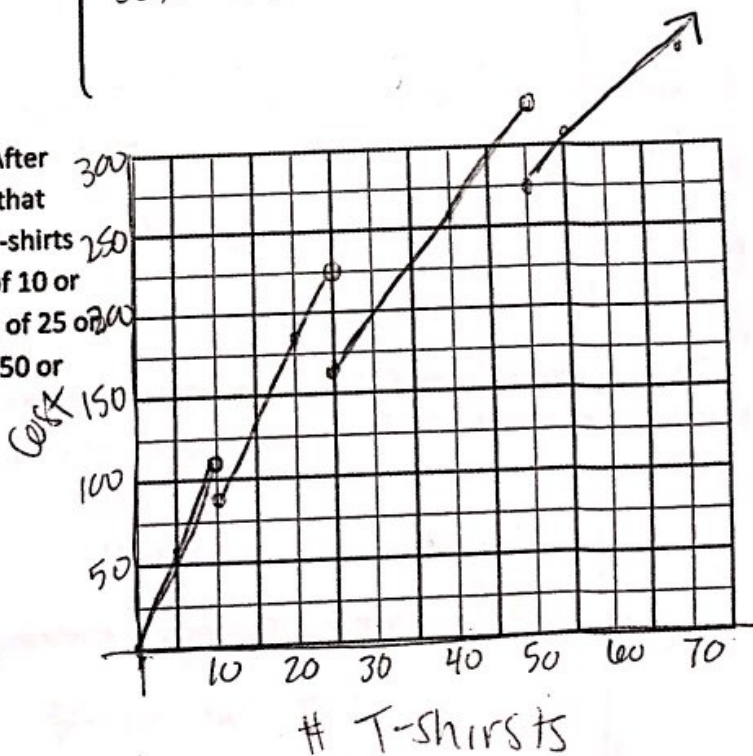 After
that
-shirts
of 10 or
of 25 or
50 or
300
250
200
150
100
50
Cost
10 20 30 40 50 60 70
# T-shirsts